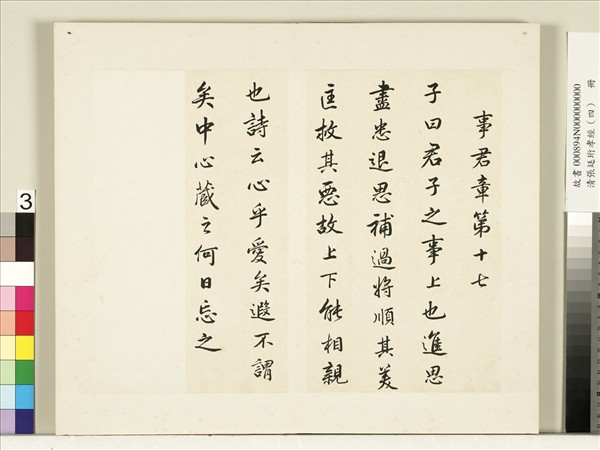 事君章第十七
子曰君子之事上也進思
盡忠退思補過將順其美
匡救其惡故上下能相親
也詩云心乎愛矣遐不謂
矣中心藏之何日忘之
故書 000894N000000000
清張廷珩孝經（四） 冊
3